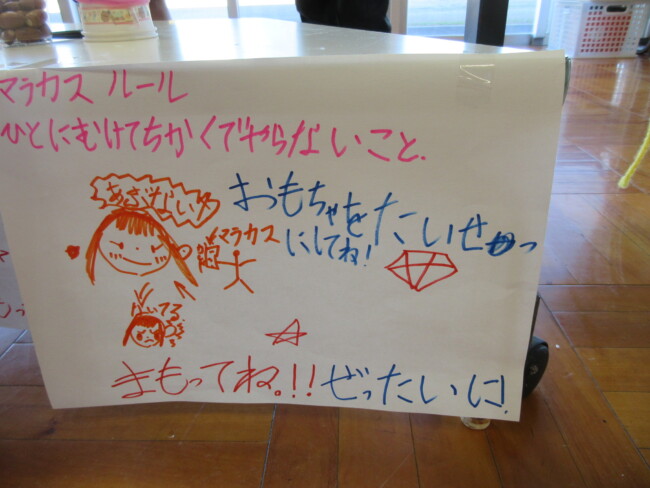 マラカス ルール
ひとにむけてちかくでやらないこと.
あぶないよ
おもちゃをたいせつ
にしてね!
マラカス
ないてる
まもってね。!! ぜったいに!